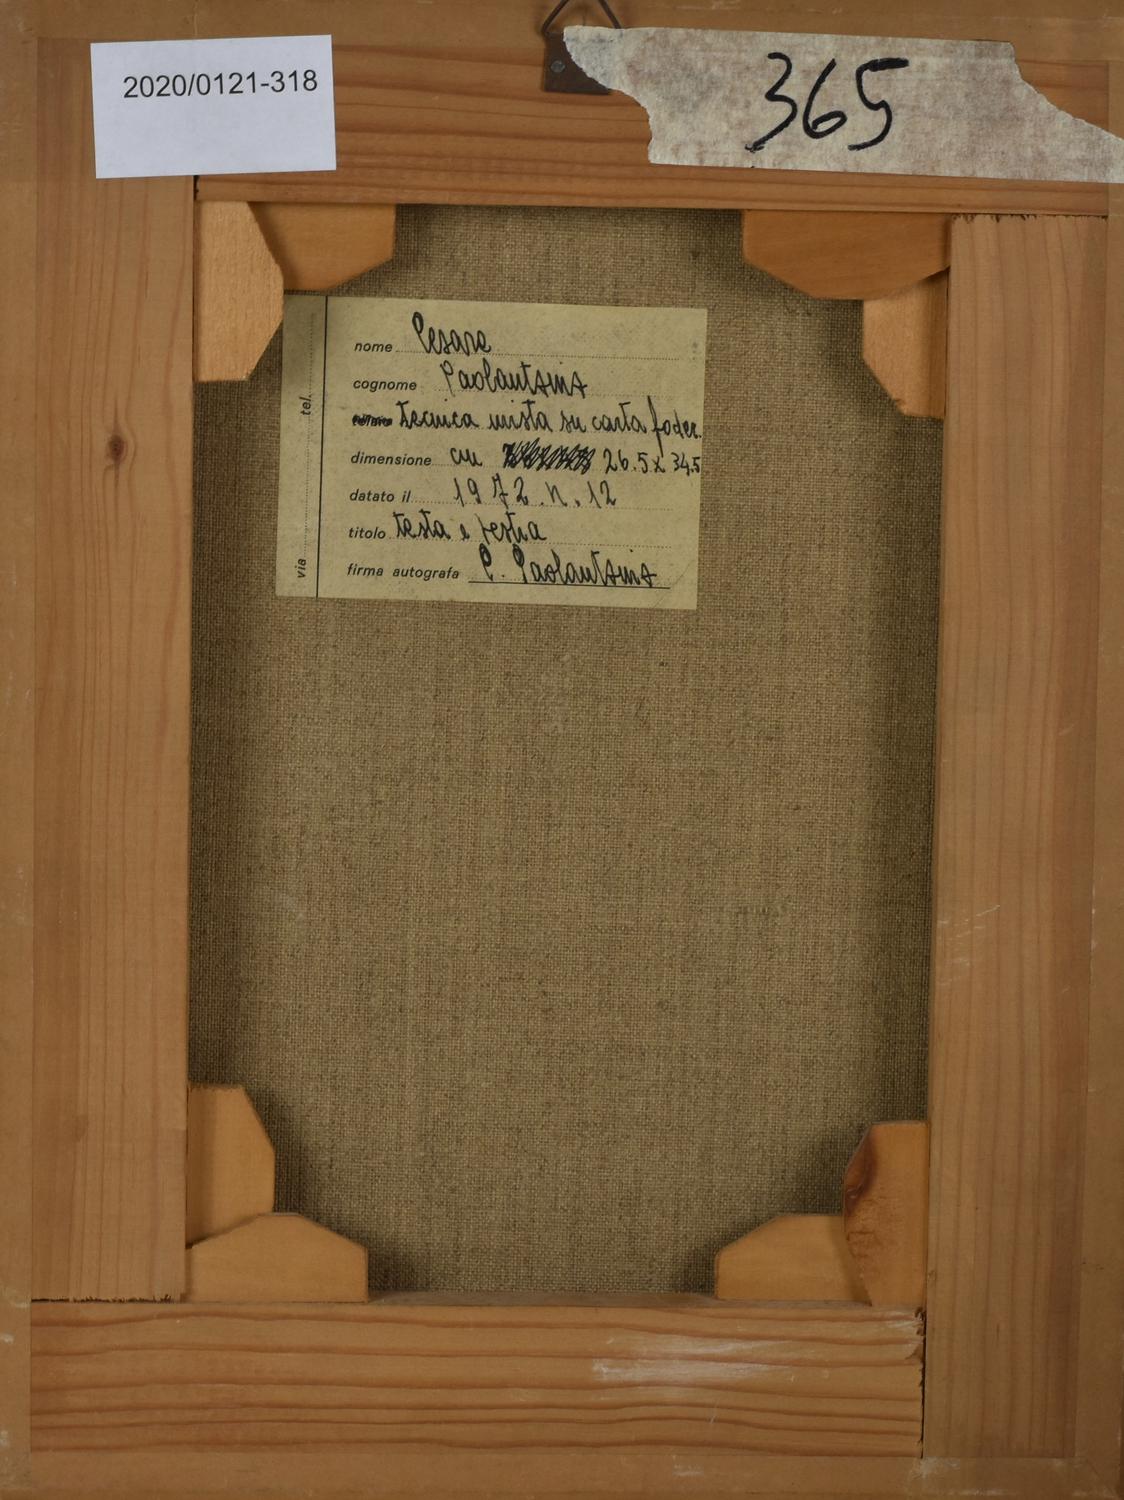 2020/0121-318
365
tel.
via
nome Cesare
cognome Paolantonio
tecnica mista su carta foder.
dimensione cm 26.5x34.5
datato il 1972.n.12
titolo testa e
firma autografa C. Paolantonio